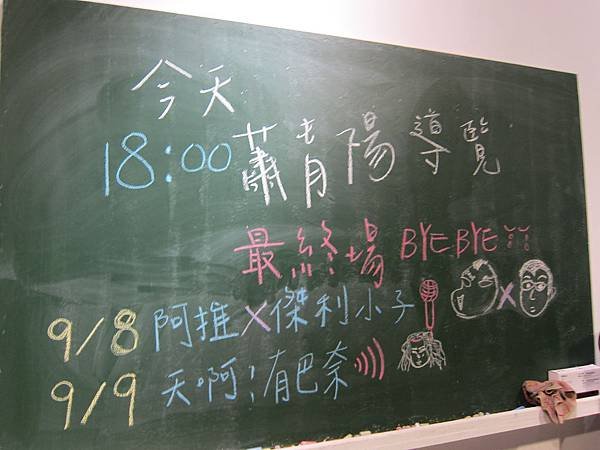 今天
18:00 蕭青陽導覽
最終場 BYEBYE
9/8 阿推X傑利小子 X
9/9 天啊!有巴奈